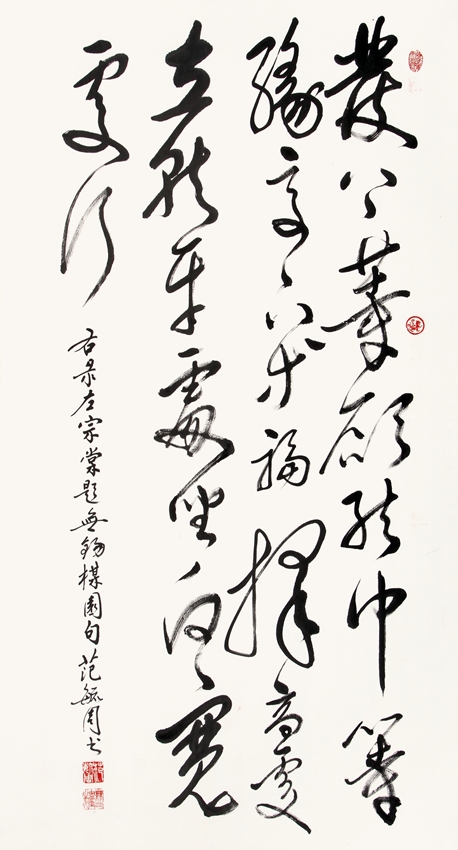 發上等願結中等
緣享下等福擇高處
立就平處坐向寬
處行
右录左宗棠題無錫楳園句范毓周书